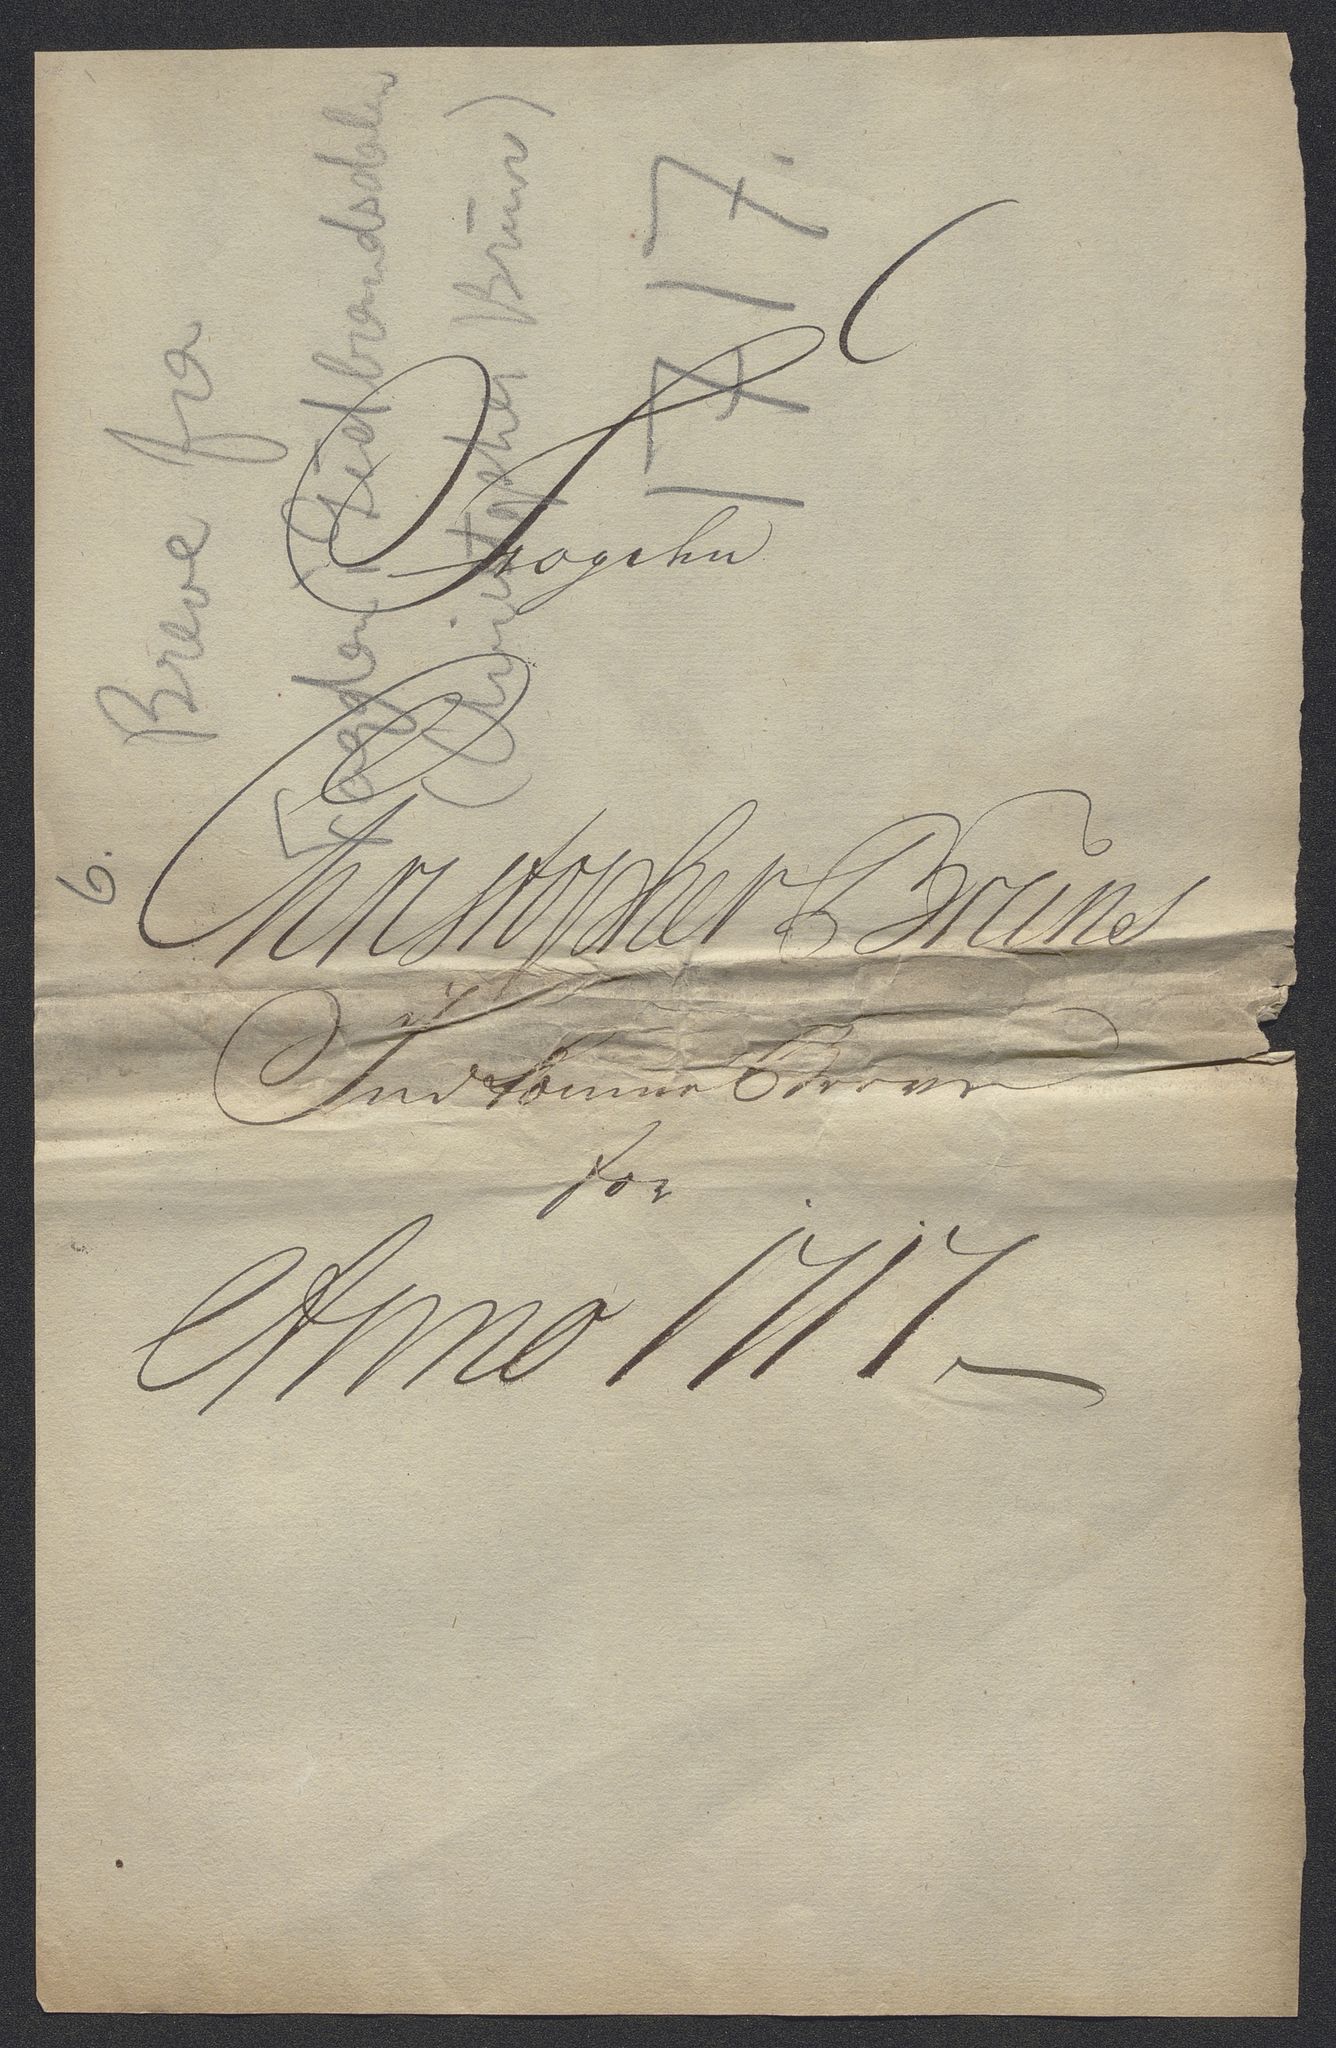 6.
Breve fra
Fogden i Gudbrandsdalen
(Christopher Brun)
1717.
Fogden
Christopher Bruns
Ind komne Breve
for
Anno 1717